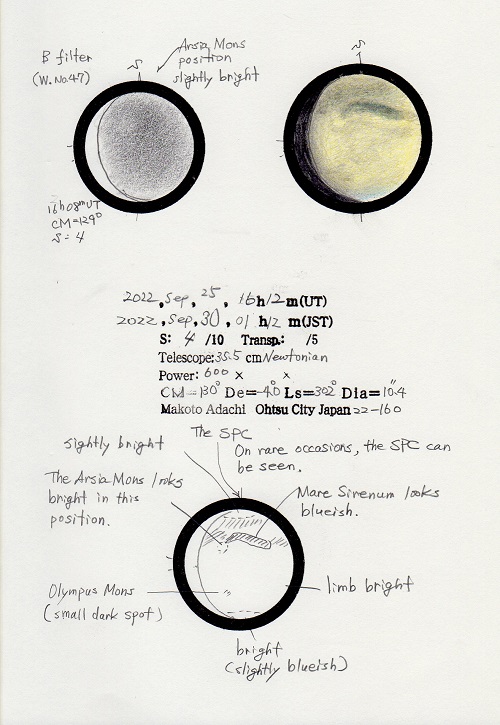 B filter
(W.No.47)
S
Arsia Mons
position
slightly bright
S
16h08mUT
CM=129°
S=4
2022, Sep, 25, 16h12m(UT)
2022, Sep, 30, 01h12m(JST)
S: 4 /10 Transp.: /5
Telescope: 35.5 cm Newtonian
Power: 600 × ×
CM=130° De=-4.0 Ls=302° Dia=10.4"
Makoto Adachi Ohtsu City Japan 22-160
slightly bright
The SPC
On rare occasions, the SPC can
be seen.
The Arsia Mons looks
bright in this
position.
Mare Sirenum looks
blueish.
Olympus Mons
(small dark spot)
limb bright
bright
(slightly blueish)